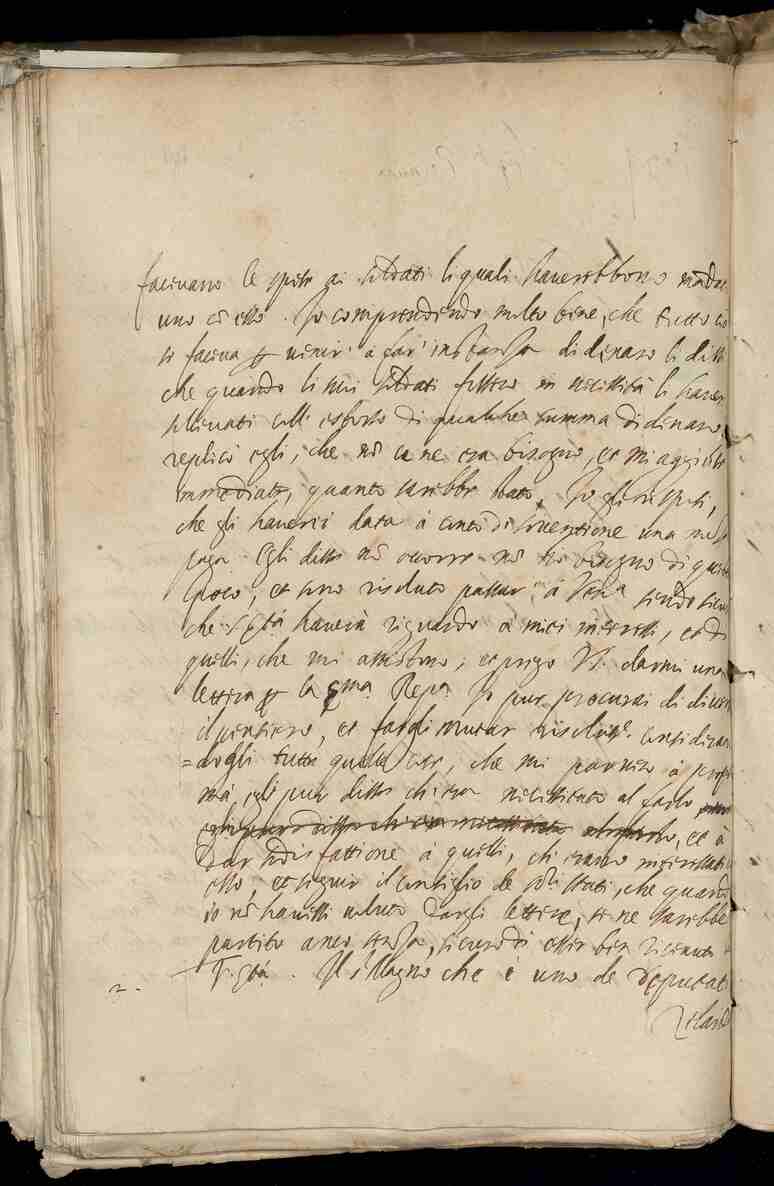 facevano le spese ai soldati li quali haverebbono mandat
uno cõ esso. Io comprendendo molto bene, che tutto ciò
si faceva ꝑ venir' a far' instanza di denaro li dissi
che quando li suoi soldati fossero in necessità li haver
sollevati coll' esborso di qualche summa di denaro,
replicò egli, che nõ ce ne era bisogno, et mi aggiunse
immediate, quanto sarebbe stato, Io gli risposi,
che gli haverei data à conto di sovventione una mez
paga. Egli disse nõ occorre nõ ho bisogno di questo
poco, et sono risoluto passar à Ven.ª sendo sicuro
che S. Stà haverà riguardo à miei interessi, et di
quelli, che mi assistono, et prego VS. darmi una
lettera ꝑ la sma Repa. Io pur procurai di divert
il pensiero, et fargli mutar risolutne consideran
=dogli tutte quelle cose, che mi parvero à propo
ma egli pur disse ch' era necessitato al farlo
egli pur disse ch' era necessitato al farlo, et à
dar sodisfattione à quelli, ch' erano interessati
esso, et seguir il consiglio de soi stati, che quando
io nõ havessi voluto dargli lettere, se ne sarebbe
partito anco senza, sicuro di esser ben ricevuto
S. Stà. Il s. Magno che è uno de deputat
2.